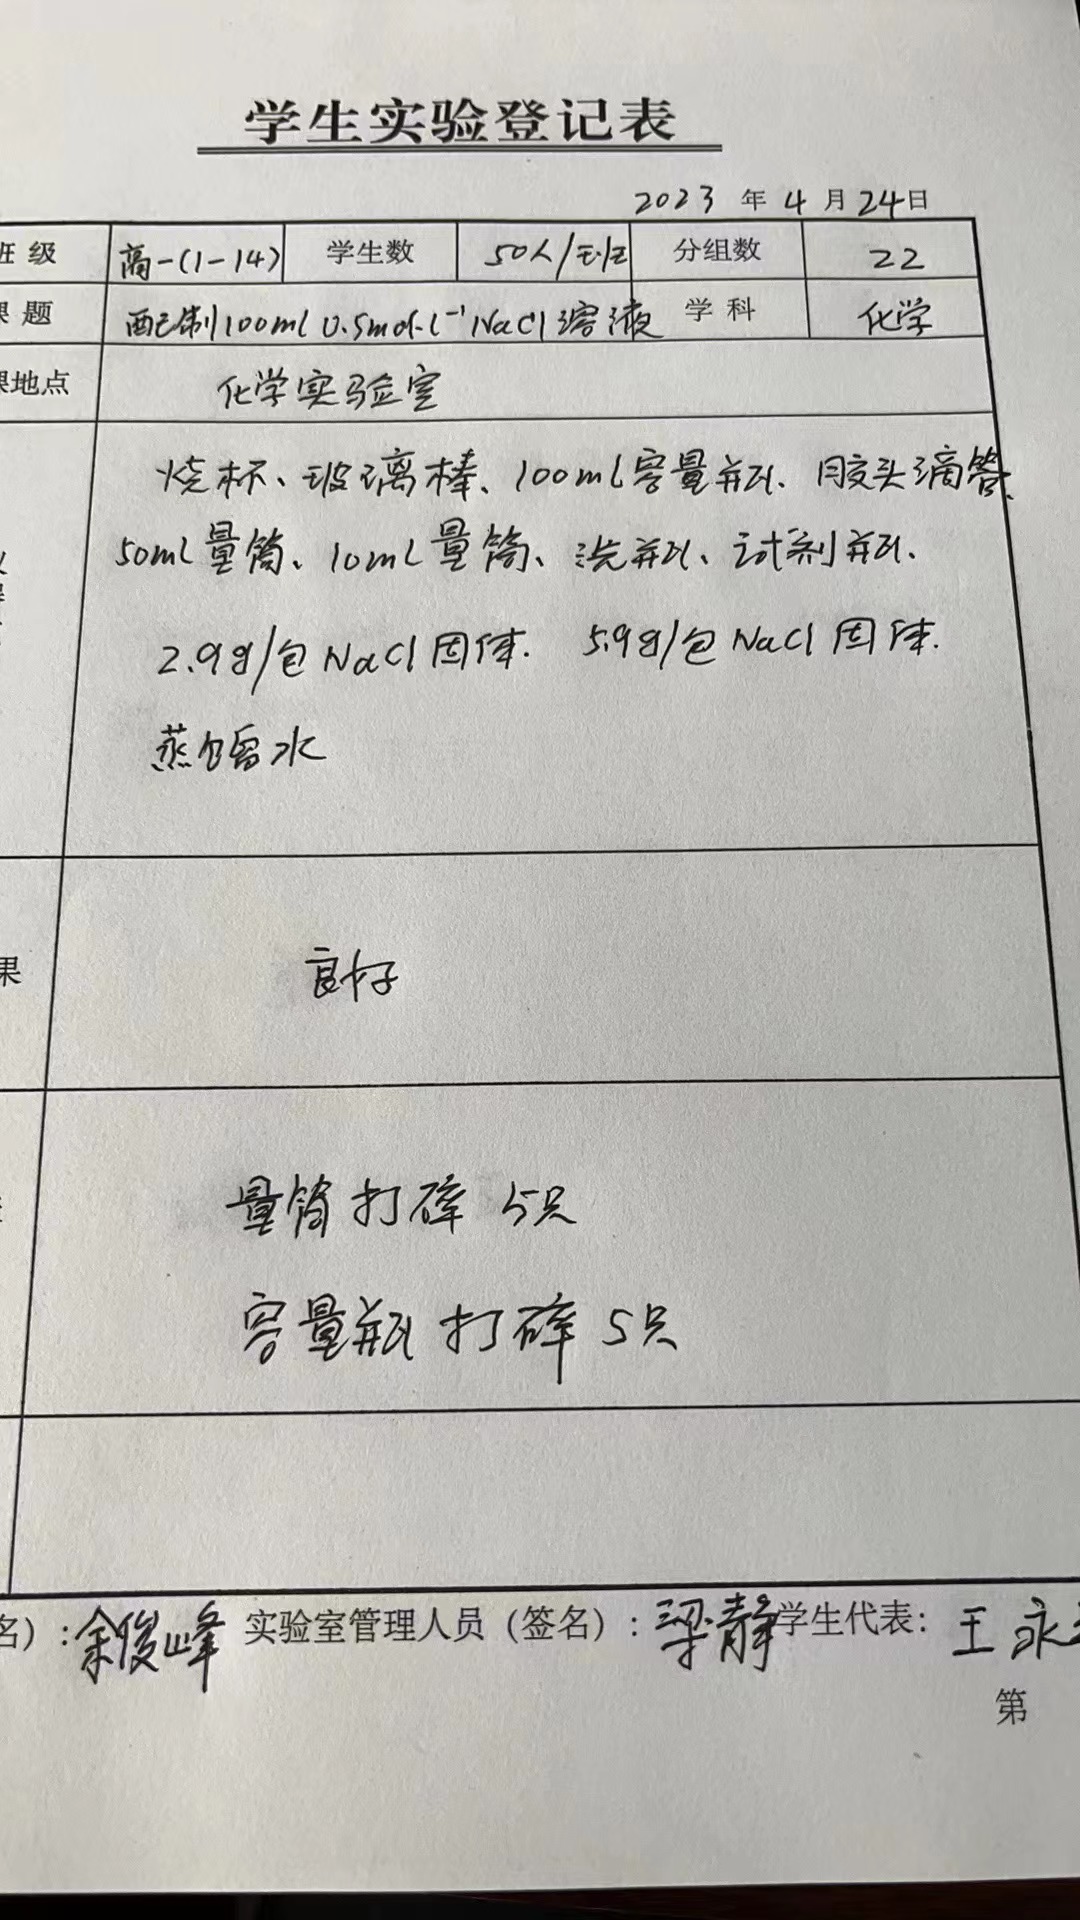 学生实验登记表
2023 年 4 月 24 日
班 级 高一(1-14) 学生数 50人/班 分组数 22
课 题 配制100ml 0.5mol·l⁻¹ NaCl溶液 学 科 化学
课地点 化学实验室
烧杯、玻璃棒、100ml容量瓶、胶头滴管、
50ml量筒、10ml量筒、洗瓶、试剂瓶.
2.9g/包NaCl固体. 5.9g/包NaCl固体.
蒸馏水
果 良好
量筒打碎 5只
容量瓶打碎 5只
名）: 余俊峰 实验室管理人员（签名）: 梁静 学生代表： 王永
第